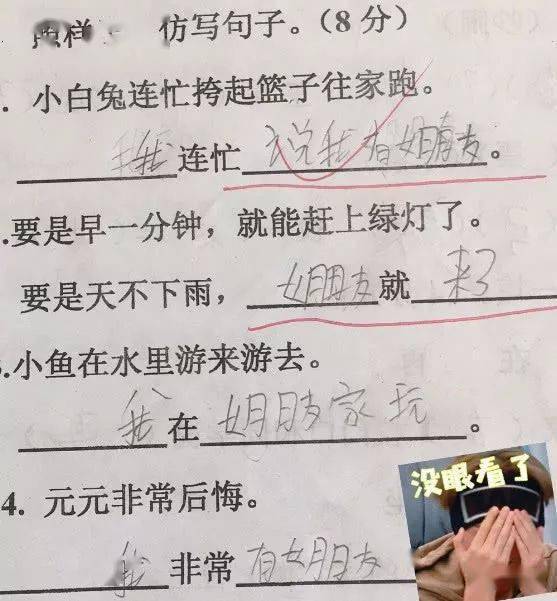 仿写句子。（8分）
. 小白兔连忙挎起篮子往家跑。
我连忙说我有女朋友。
.要是早一分钟，就能赶上绿灯了。
要是天不下雨，女朋友就来了
.小鱼在水里游来游去。
我在女朋友家玩。
4. 元元非常后悔。
我非常有女朋友
没眼看了